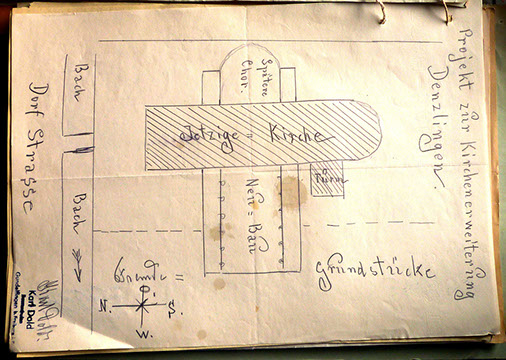 Projekt zur Kirchenerweiterung
Denzlingen.
Spätere
Chor.
Jetzige = Kirche
Turm
Neu = Bau
Grundstücke
Bach
Bach
Dorf Strasse
N.
S.
O.
W.
Karl Dold